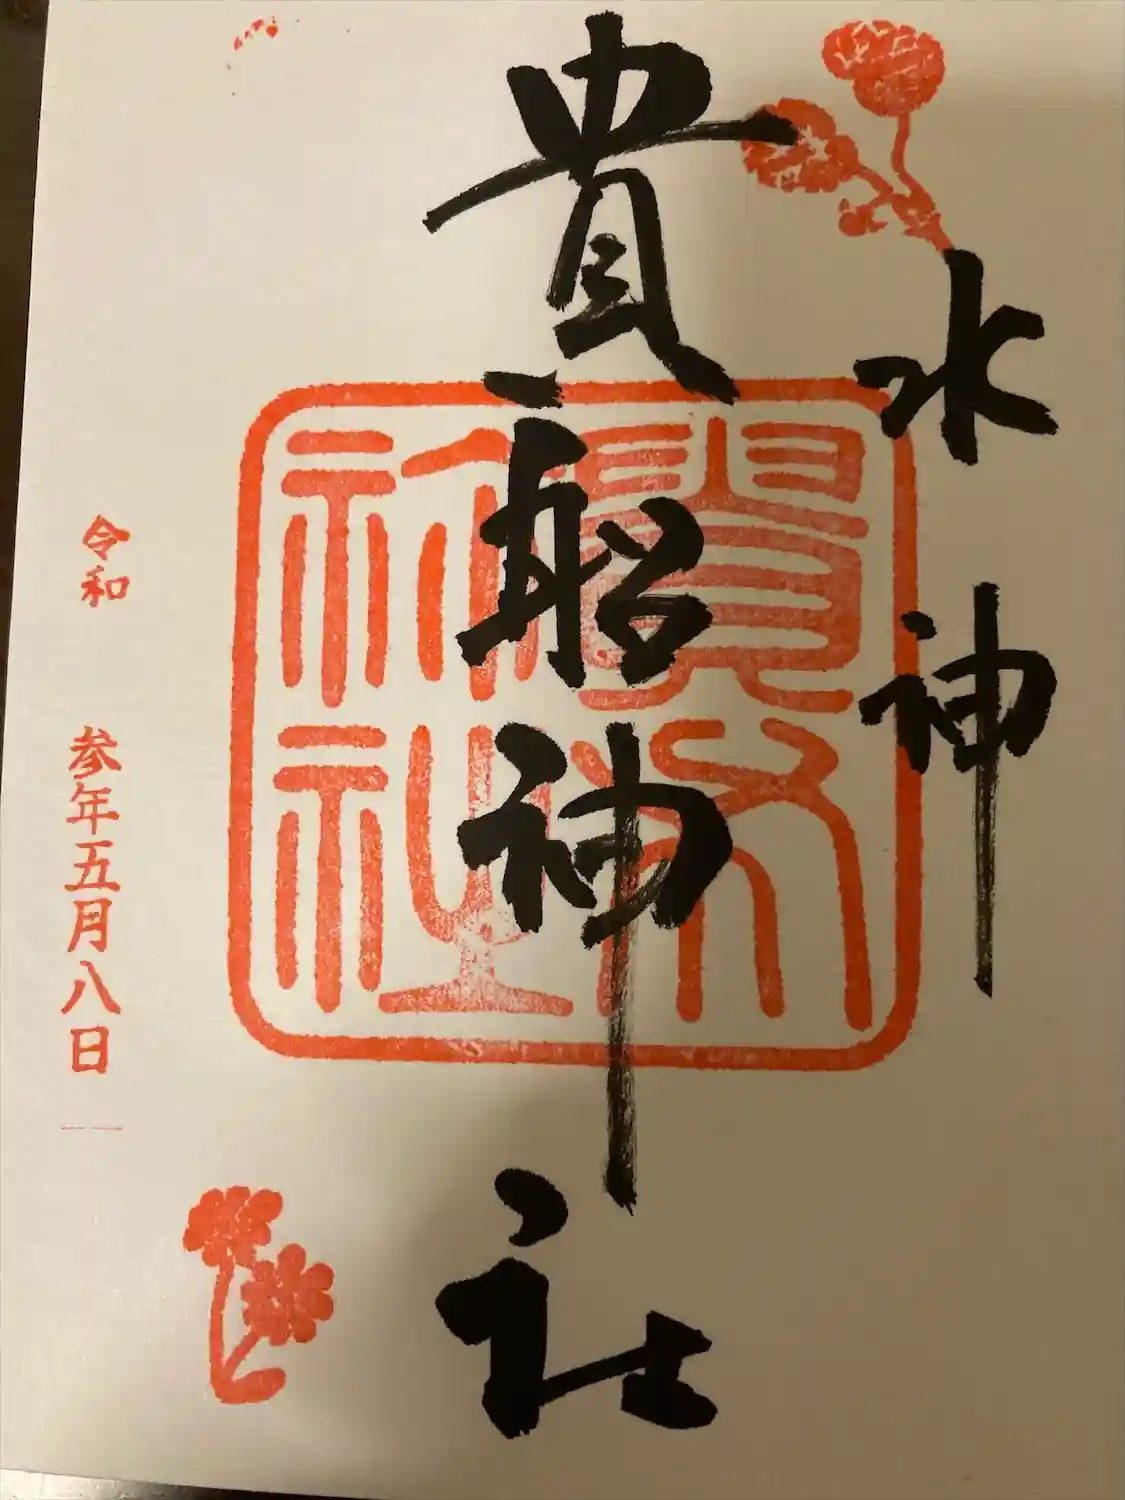 水神
貴船神社
貴布
祢社
令和 参年五月八日